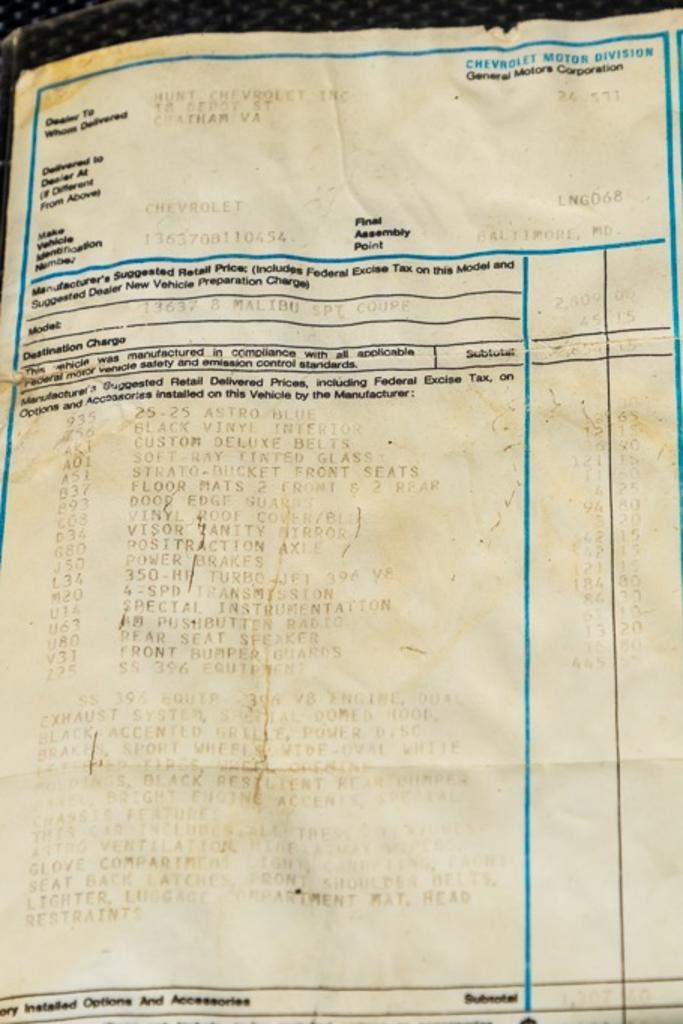 CHEVROLET MOTOR DIVISION
General Motors Corporation
Dealer To
Whom Delivered
HUNT CHEVROLET INC
18 DEPOT ST
CHATHAM VA
Delivered to
Dealer At
(If Different
From Above)
LNG068
Make
CHEVROLET
Vehicle
Identification
Number
136370B110454
Final
Assembly
Point
BALTIMORE, MD.
Manufacturer's Suggested Retail Price: (Includes Federal Excise Tax on this Model and
Suggested Dealer New Vehicle Preparation Charge)
Model:
13637 8 MALIBU SPT COUPE
2,809 00
Destination Charge
45 15
This vehicle was manufactured in compliance with all applicable
Federal motor vehicle safety and emission control standards.
Subtotal
Manufacturer's Suggested Retail Delivered Prices, including Federal Excise Tax, on
Options and Accessories installed on this Vehicle by the Manufacturer:
935 25-25 ASTRO BLUE
756 BLACK VINYL INTERIOR
CUSTOM DELUXE BELTS
A01 SOFT-RAY TINTED GLASS
A51 STRATO-BUCKET FRONT SEATS
B37 FLOOR MATS 2 FRONT & 2 REAR
B93 DOOR EDGE GUARDS
C08 VINYL ROOF COVER/BL
D34 VISOR VANITY MIRROR
G80 POSITRACTION AXLE
J50 POWER BRAKES
L34 350-HP TURBO-JET 396 V8
M20 4-SPD TRANSMISSION
U14 SPECIAL INSTRUMENTATION
U63 AM PUSHBUTTON RADIO
U80 REAR SEAT SPEAKER
V31 FRONT BUMPER GUARDS
Z25 SS 396 EQUIPMENT
SS 396 EQUIP- 396 V8 ENGINE, DUAL
EXHAUST SYSTEM, SPECIAL DOMED HOOD,
BLACK ACCENTED GRILLE, POWER DISC
BRAKES, SPORT WHEELS, WIDE-OVAL WHITE
LETTERED TIRES, WHEEL OPENING
MOLDINGS, BLACK RESILIENT REAR BUMPER
PANEL BRIGHT ENGINE ACCENTS, SPECIAL
CHASSIS FEATURES
THIS CAR INCLUDES ALL THESE FEATURES-
ASTRO VENTILATION,
GLOVE COMPARTMENT LIGHT, CARPETING, FRONT
SEAT BACK LATCHES, FRONT SHOULDER BELTS,
LIGHTER, LUGGAGE COMPARTMENT MAT, HEAD
RESTRAINTS
ory Installed Options And Accessories
Subtotal